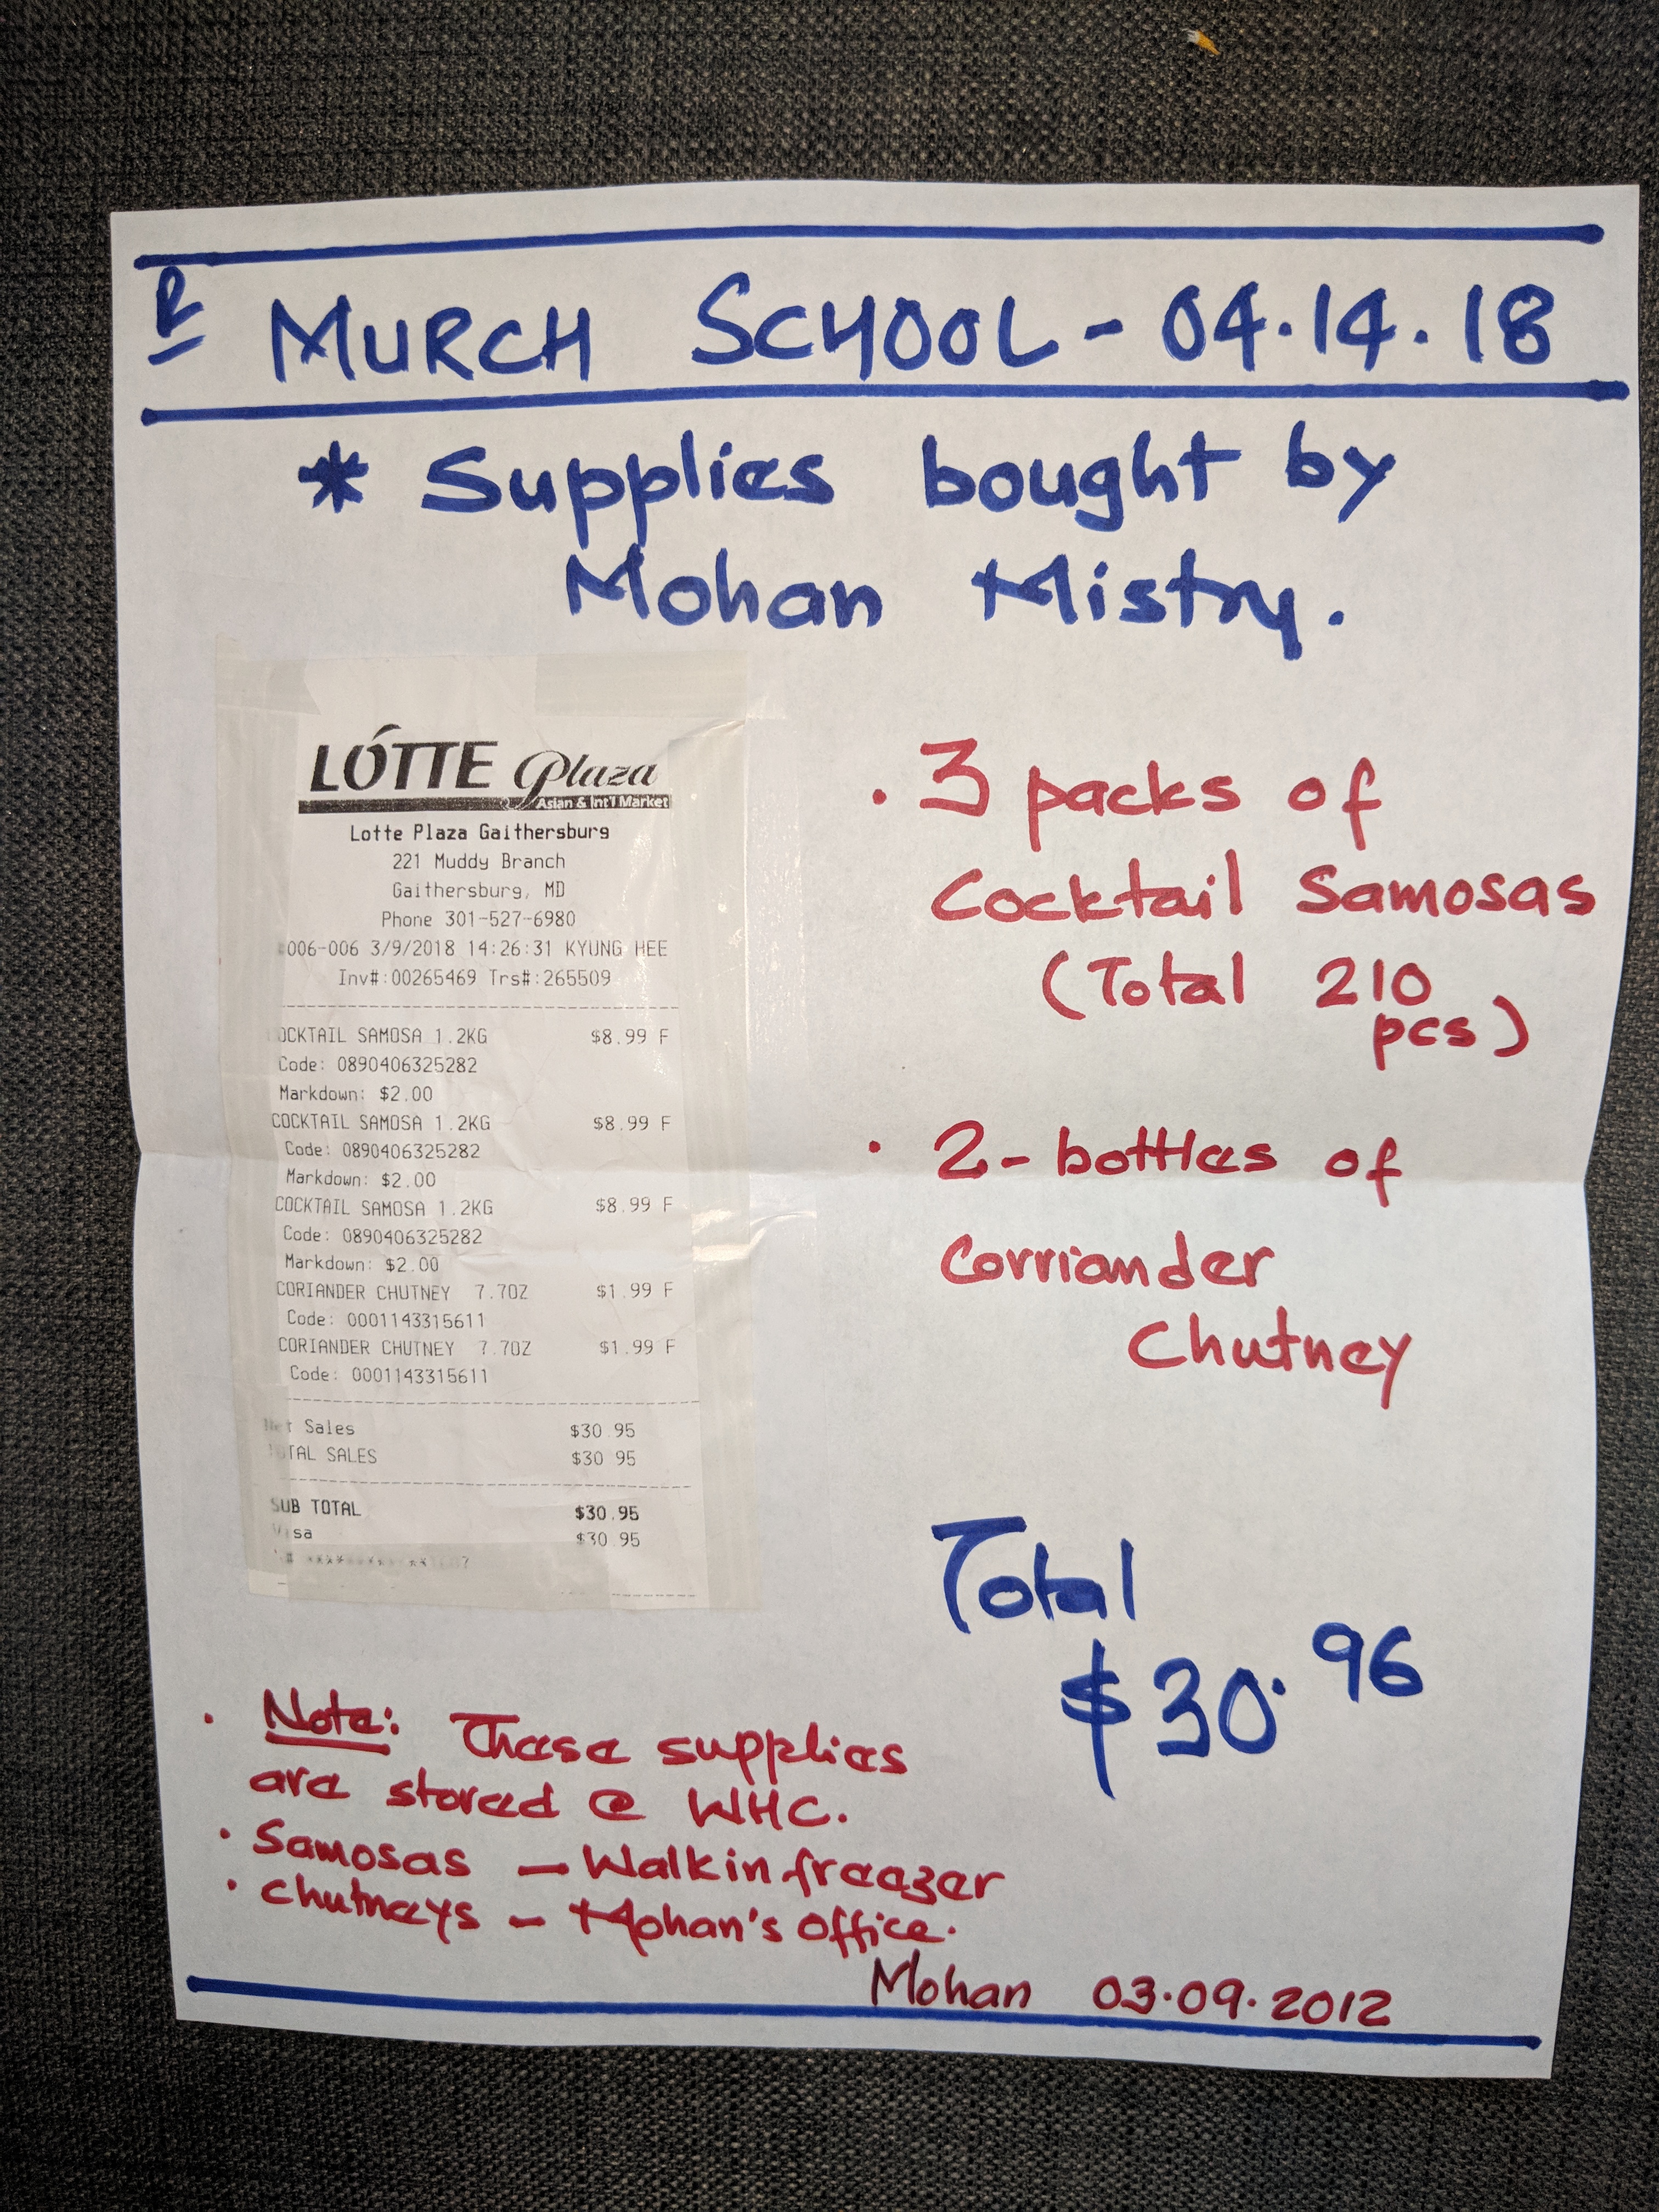 R MURCH SCHOOL - 04.14.18
* Supplies bought by
Mohan Mistry.
LOTTE Plaza
Asian & Int'l Market
Lotte Plaza Gaithersburg
221 Muddy Branch
Gaithersburg, MD
Phone 301-527-6980
006-006 3/9/2018 14:26:31 KYUNG HEE
Inv#:00265469 Trs#:265509
OCKTAIL SAMOSA 1.2KG $8.99 F
Code: 0890406325282
Markdown: $2.00
COCKTAIL SAMOSA 1.2KG $8.99 F
Code: 0890406325282
Markdown: $2.00
COCKTAIL SAMOSA 1.2KG $8.99 F
Code: 0890406325282
Markdown: $2.00
CORIANDER CHUTNEY 7.7OZ $1.99 F
Code: 0001143315611
CORIANDER CHUTNEY 7.7OZ $1.99 F
Code: 0001143315611
Net Sales $30.95
TAL SALES $30.95
SUB TOTAL $30.95
Visa $30.95
• 3 packs of
Cocktail Samosas
(Total 210
pcs)
• 2-bottles of
Corriander
Chutney
Total
$30.96
• Note: These supplies
are stored @ WHC.
• Samosas - Walkin freezer
• Chutneys - Mohan's office.
Mohan 03.09.2012